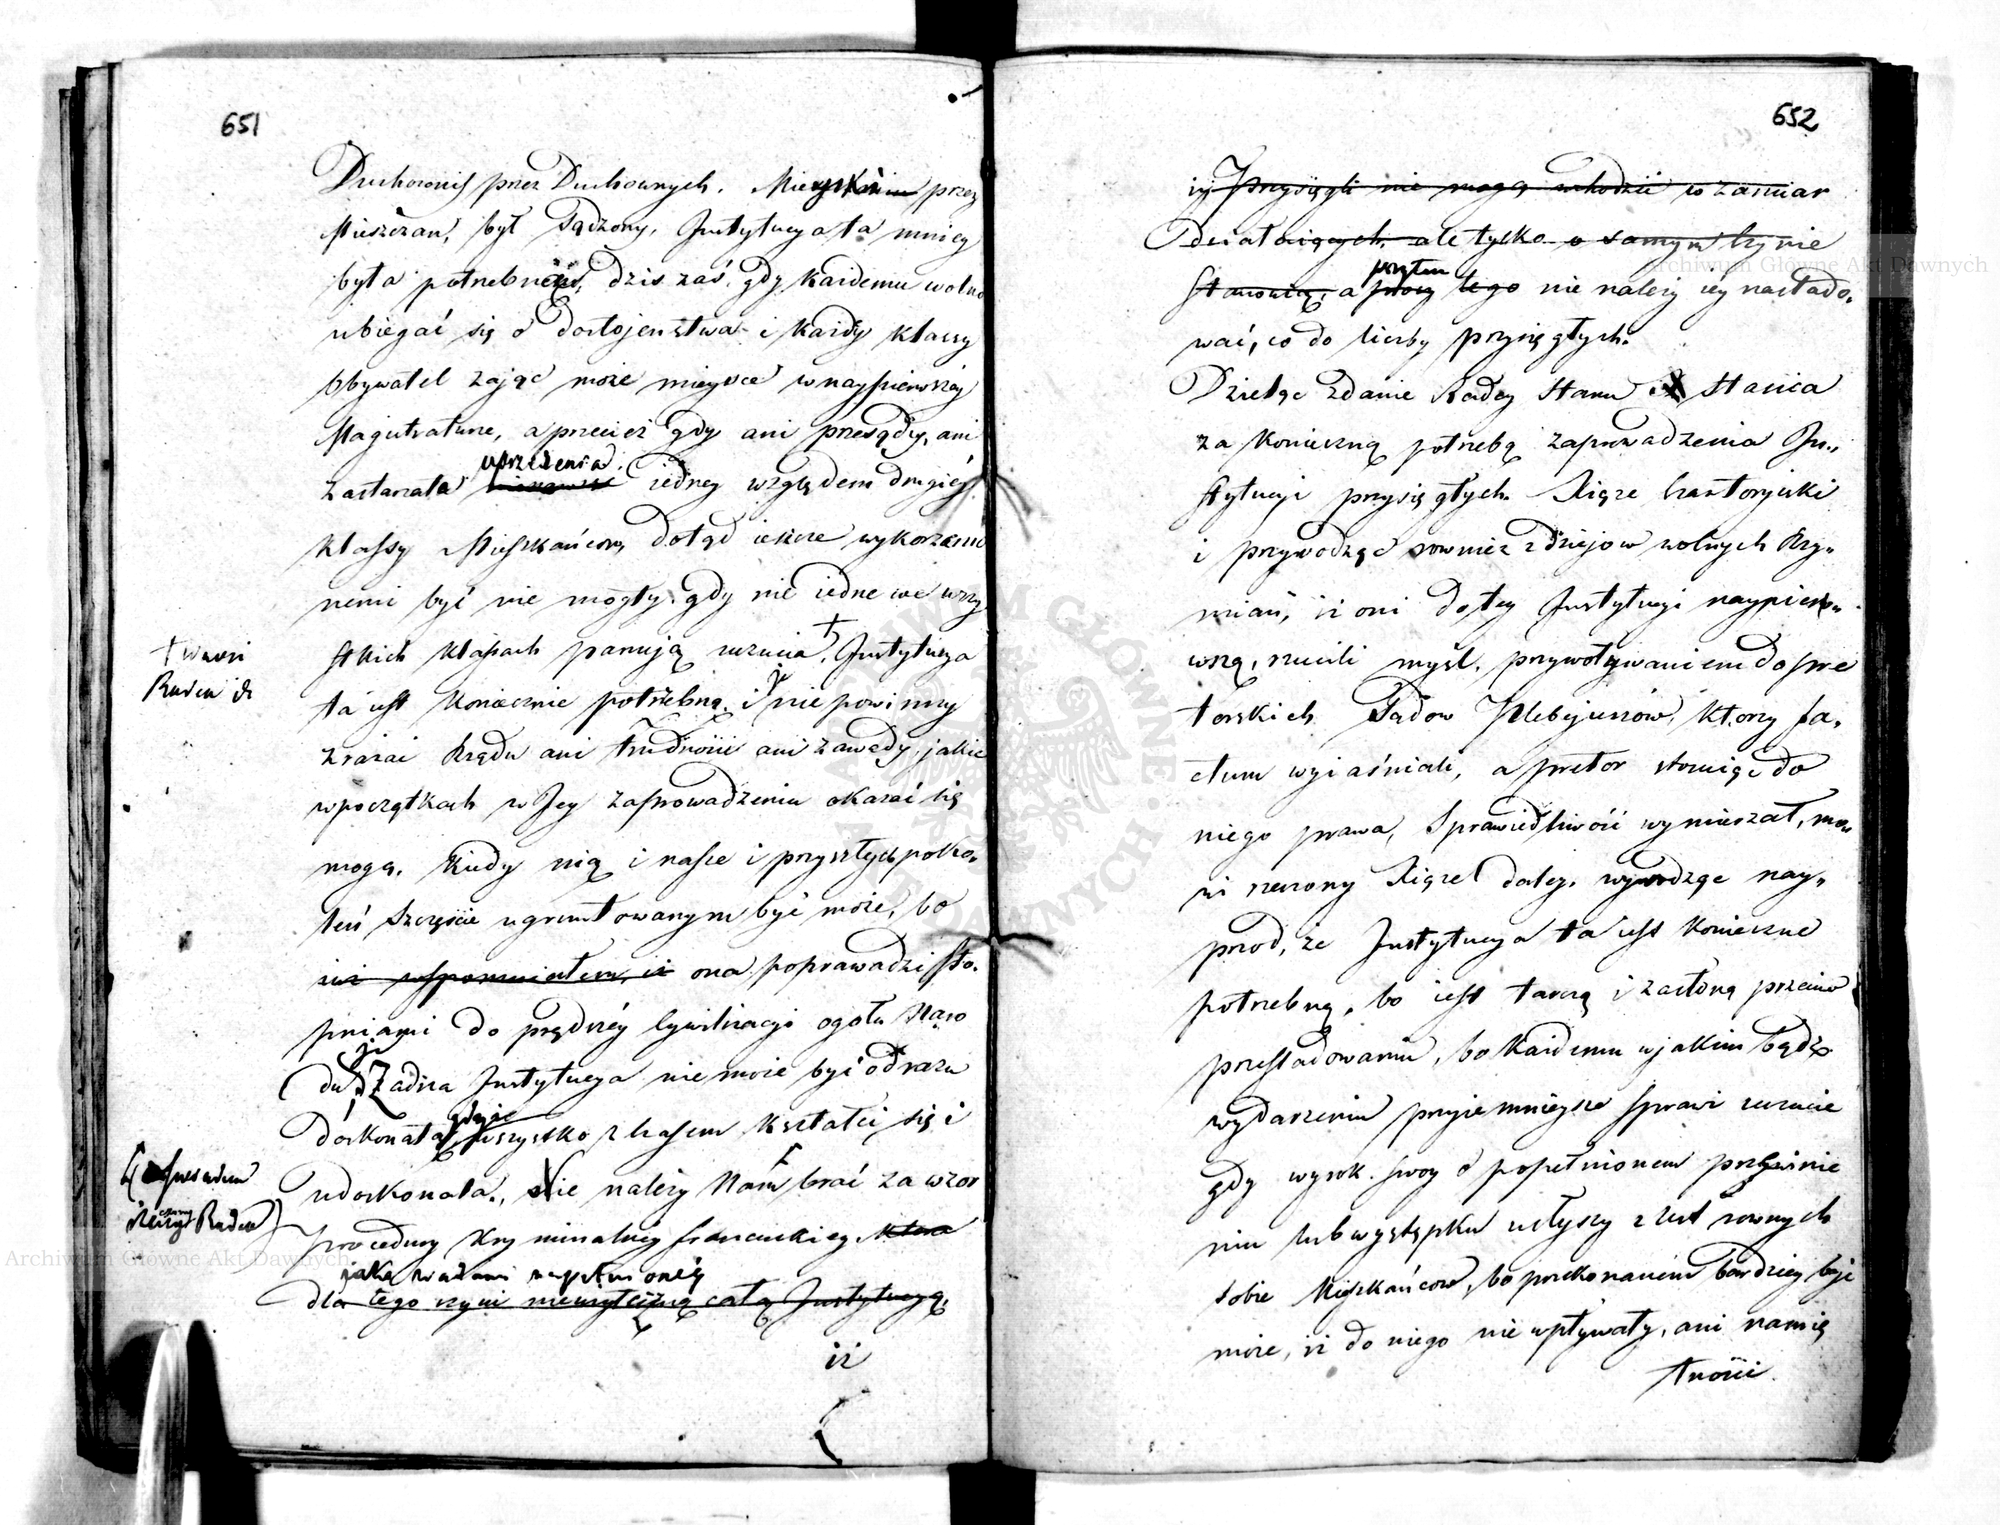 651
Duchowny przez Duchownych, Mieyski przez
Mieszczan, był sądzony, Instytucya ta mniey
była potrzebną, dziś zaś, gdy każdemu wolno
ubiegać się o dostojeństwa i każdy klassy
Obywatel zająć może mieysce w naypierwszéy
Magistraturze, a przecież gdy ani przesądy, ani
uprzedzenia
zastarzała iedney względem drugiéy
klassy Mieszkańców, dotąd ieszcze wykorzenio
nemi być nie mogły, gdy nie iedne we wszy
stkich klassach panują uczucia, † Instytucya
† wnosi
Radca St
ta iest koniecznie potrzebną, i nie powinny
zrażać Rządu ani trudności ani zawady, jakie
w początkach w Jey zaprowadzeniu okazać się
mogą. Kiedy nią i nasze i przyszłych poko-
leń szczęście ugruntowanym być może, bo
iuż wspomniałem iż ona poprawadzi sto-
pniami do prędszéy Cywilizacyi ogółu Naro
du, Żadna Instytucya nie może być od razu
gdyż
doskonała wszystko z czasem kształci się i
udoskonala. Nie należy Nam brać za wzór
Radca
procedury kryminalney francuskiey, która
jako wadami napełnionéy
dla tego czyni nieużyteczną całą Instytucyą,
iż
652
iż Przysięgli nie mogą wchodzić w zamiar
Działaiących, ale tylko o samym czynie
przytem
stanowią, a przez tego nie należy iey naślado-
wać, co do liczby przysięgłych.
Dzieląc zdanie Radcy Stanu Stasica
za konieczną potrzebą zaprowadzenia In-
stytucyi przysięgłych Xiąże Czartoryski
i przywodząc rownież z dziejow wolnych Rzy-
mian, iż oni do tey Instytucyi naypierw-
wszą, rzucili myśl, przywoływaniem do pre
torskich Sądow Plebejuszów, ktorzy fa-
ctum wyiaśniali, a pretor stosuiąc do
niego prawa, Sprawiedliwość wymierzał, mó
wi rzeczony Xiąże daley, wywodząc nay-
przod, że Instytucya ta iest koniecznie
potrzebną, bo iest tarczą i zasłoną przeciw
prześladowaniu, bo każdemu w jakim bądź
wydarzeniu przyiemnieysze sprawi uczucie
gdy wyrok swoy o popełnionem przewinie
niu lub występku usłyszy z ust rownych
sobie Mieszkańcow, bo przekonanem bardziey być
może, iż do niego nie wpływały, ani namię
tności
Archiwum Główne Akt Dawnych